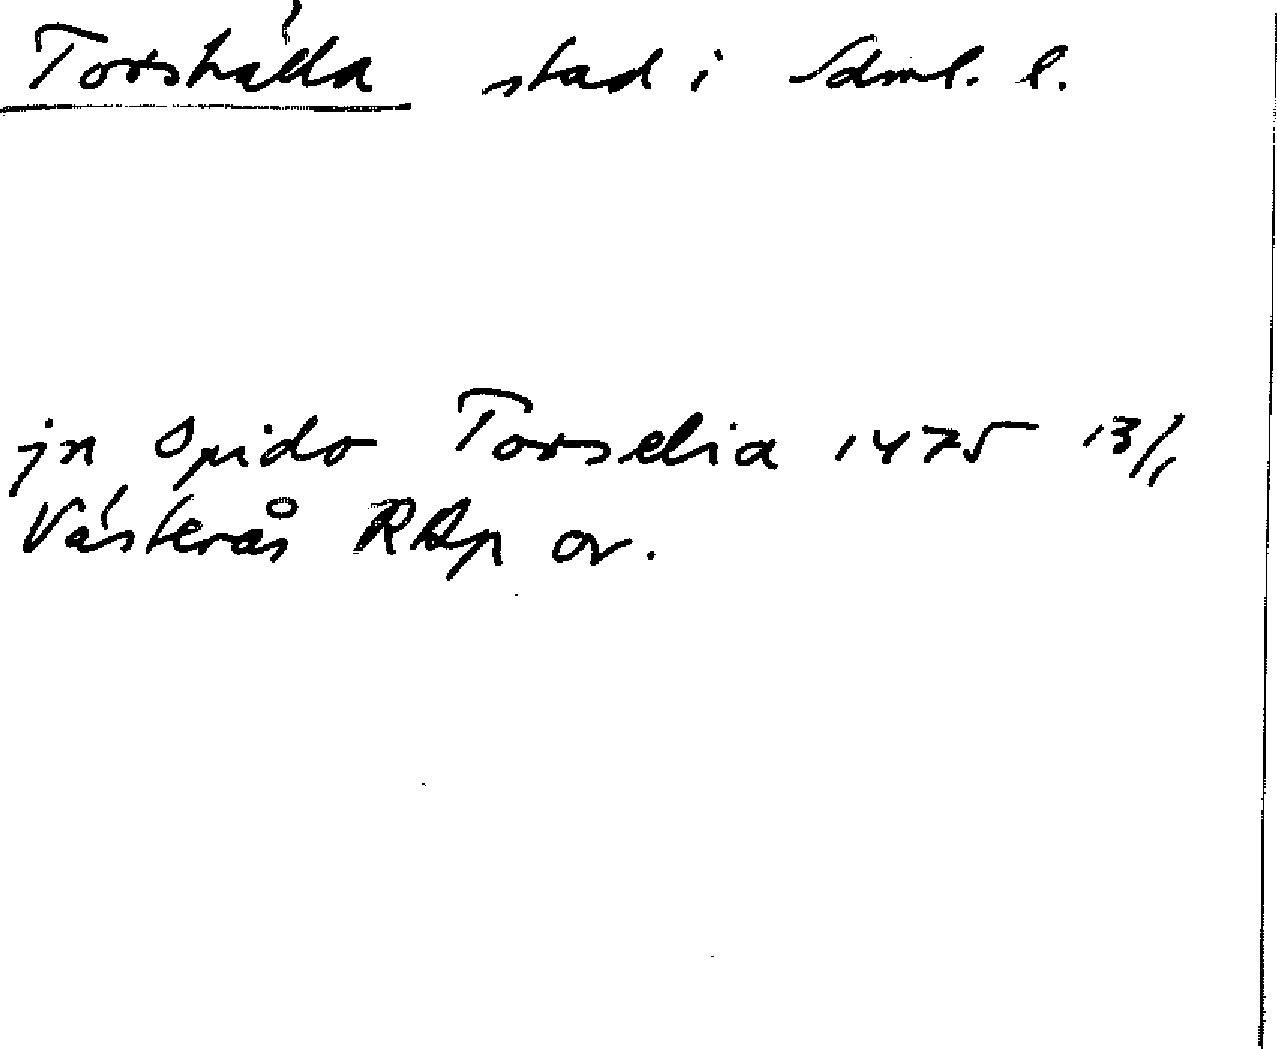 Torshälla stad i Sdml. l.
jn Opido Torselia 1475 13/1
Västerås RAp or.